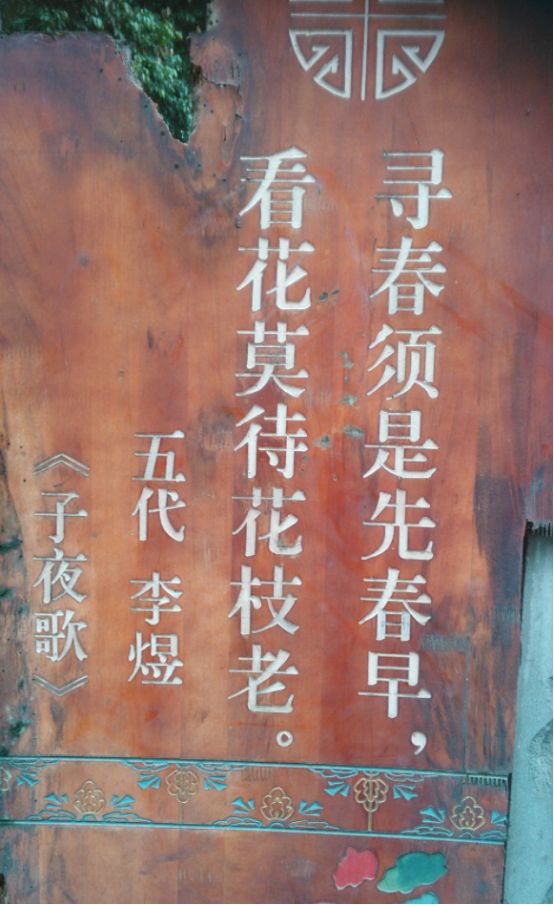 寻春须是先春早，
看花莫待花枝老。
五代 李煜
《子夜歌》